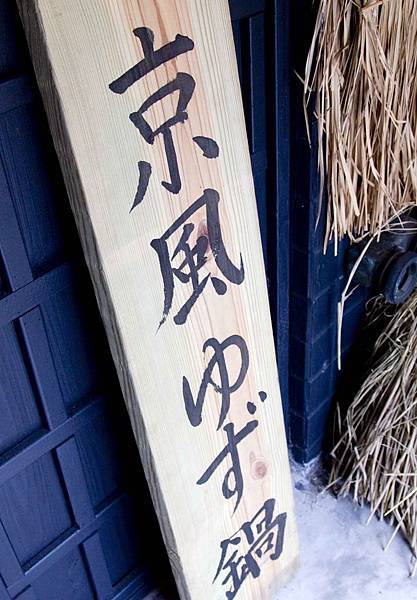 京風ゆず鍋